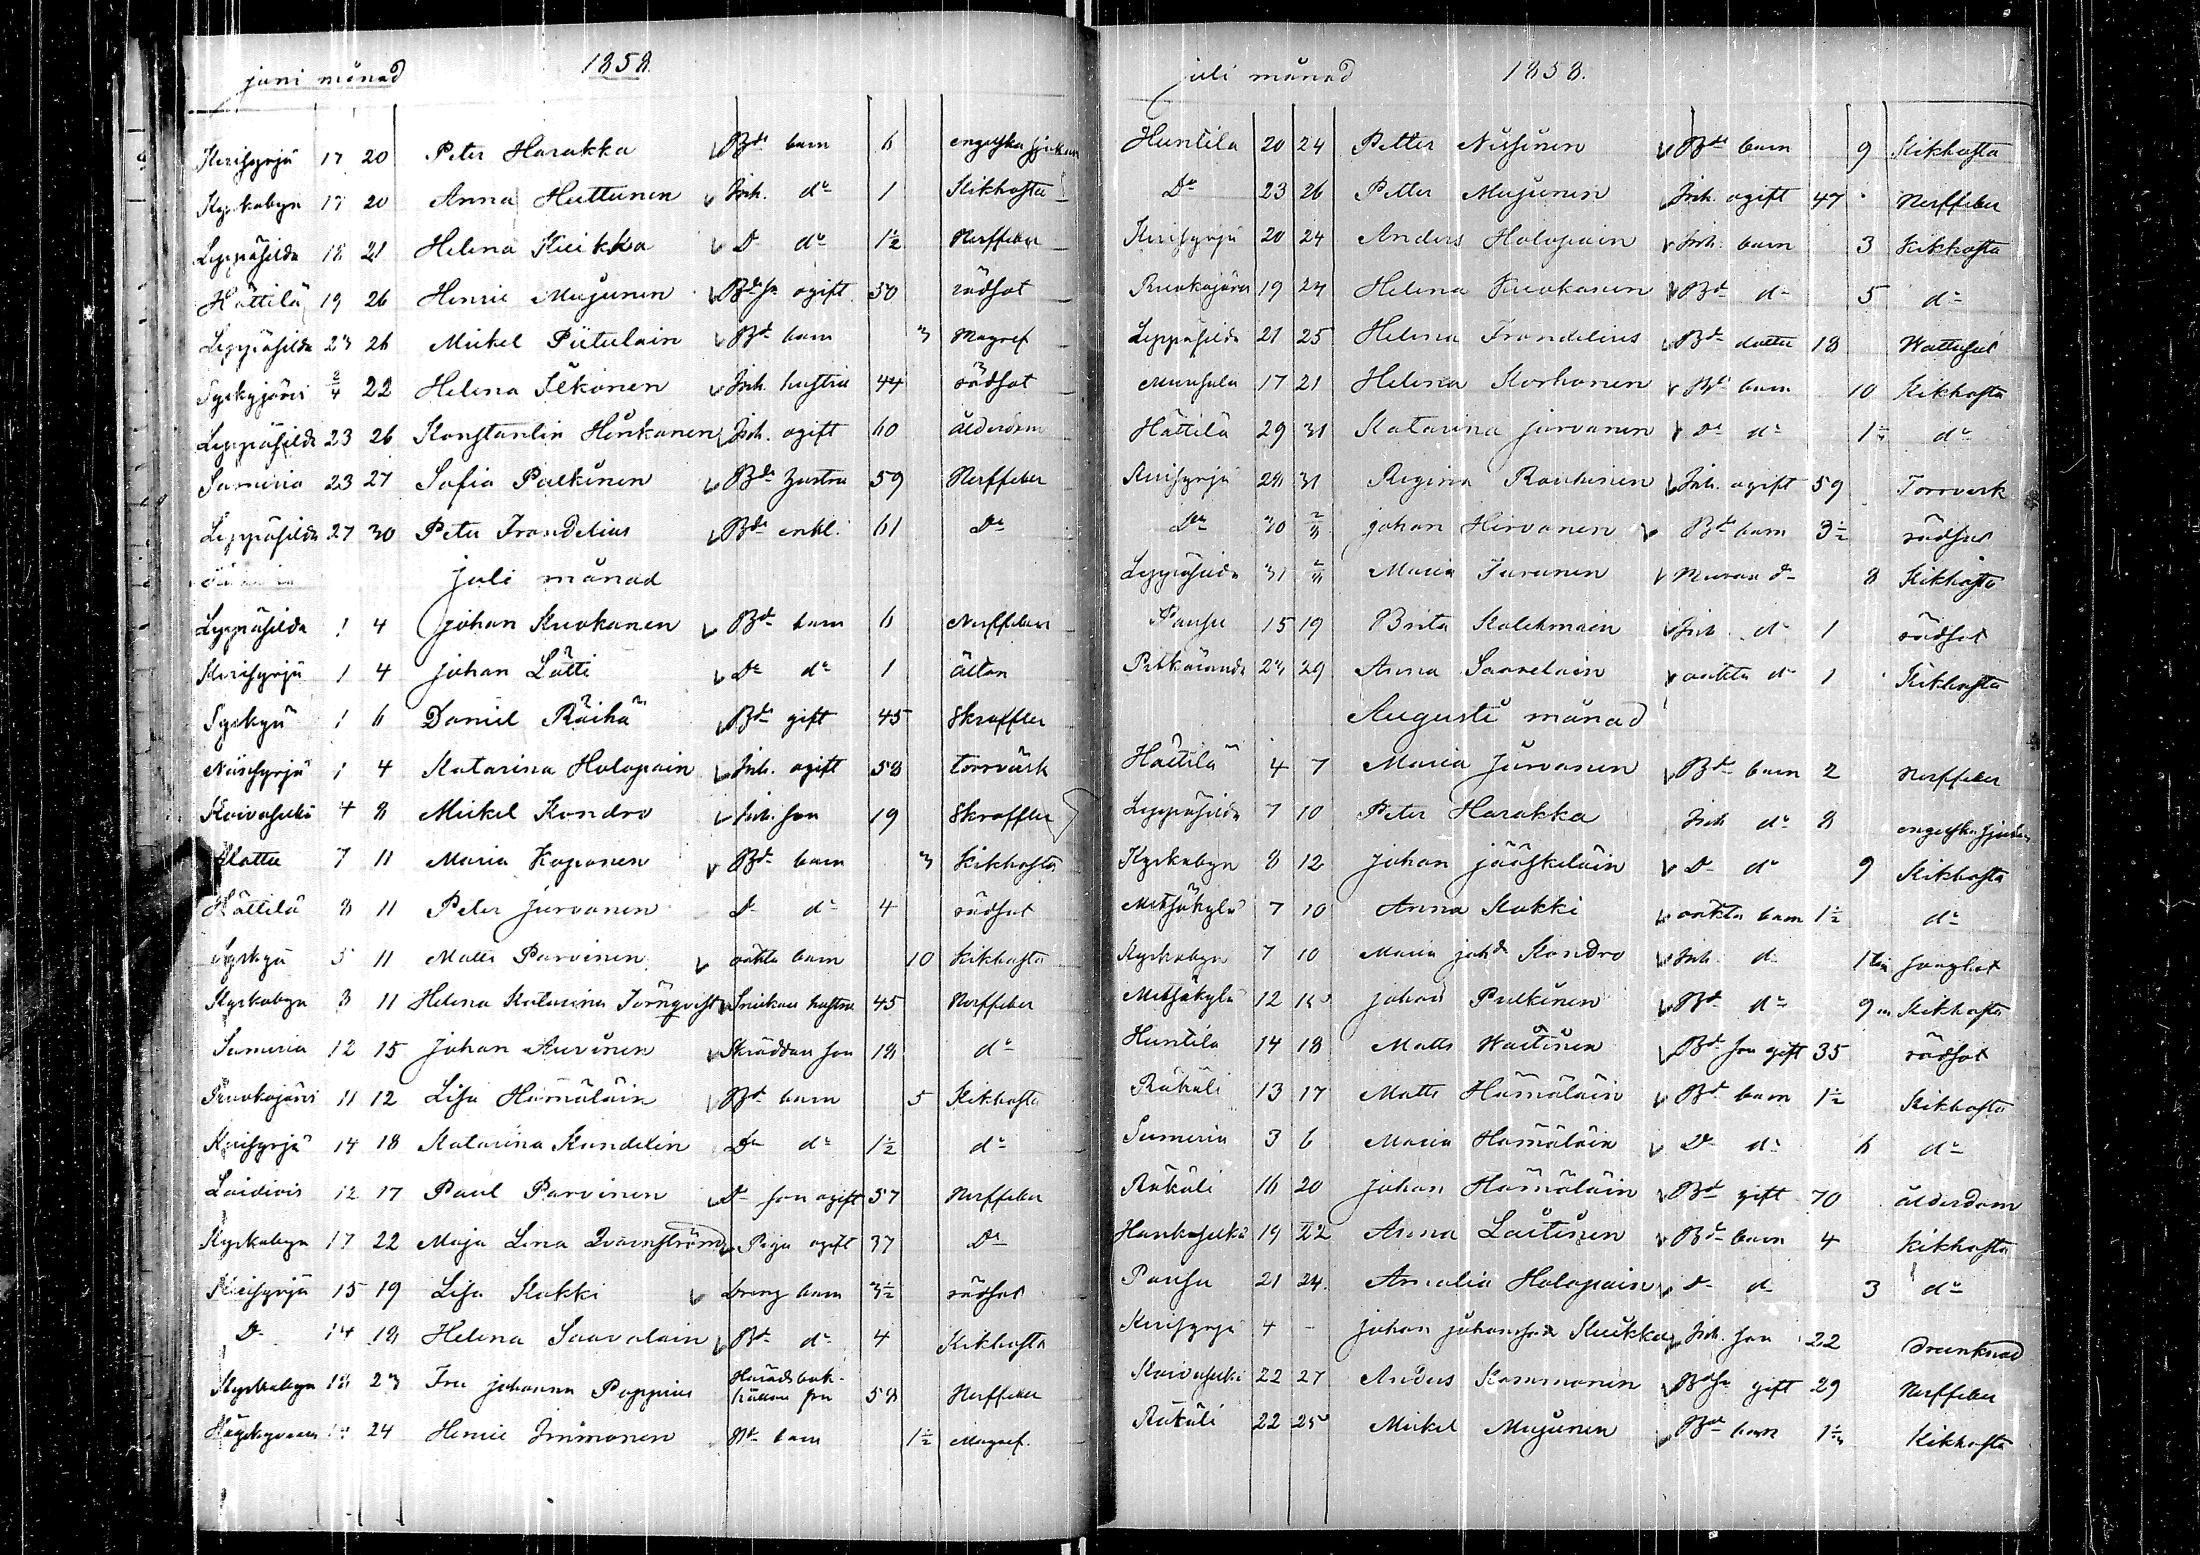 juni månad 1858.
Kerisyrjä 17 20 Peter Harakka Bde barn 6 engelska sjukan
Kyrkobyn 17 20 Anna Huttunen Inh. do 1 Kikhosta
Leppäsilda 18 21 Helena Kuikka Do do 1½ Nerffeber
Hättilä 19 26 Henric Mujunen Bde sn ogift 30 rödsot
Leppäsilda 23 26 Mickel Piitulain Bde barn 3 Magref
Syskyjärvi 2/4 22 Helena Ikonen Inh. hustru 44 rödsot
Leppäsilda 23 26 Konstantin Hinkanen Inh. ogift 60 ålderdom
Sumeria 23 27 Sofia Pulkinen Bde hustru 59 Nerffeber
Leppäsilda 27 30 Peter Frandelius Bde enkl. 61 Do
Juli månad
Leppäsilda 1 4 Johan Kuokanen Bde barn 6 Nerffeber
Kerisyrjä 1 4 Johan Lätti Do do 1 ältan
Syskyä 1 6 Daniel Räihä Bde gift 45 Skroffler
1 4 Katarina Holopain Inh. ogift 58 torrvärk
Koivuselkä 4 8 Mickel Kondro Inh. son 19 Skroffler
Alattu 7 11 Maria Koponen Bde barn 3 Kikhosta
Hättilä 8 11 Peter Jurvanen Do do 4 rödsot
Syskyä 5 11 Matts Parvinen oäkta barn 10 Kikhosta
Kyrkobyn 8 11 Helena Katarina Törnqvist Snickare hustru 45 Nerffeber
Sumeria 12 15 Johan Auvinen Skräddare son 18 do
Ruokojärvi 11 12 Lisa Hämäläin Bde barn 5 Kikhosta
Kerisyrjä 14 18 Katarina Kandelin Do do 1½ do
12 17 Paul Parvinen Do son ogift 57 Nerffeber
Kyrkobyn 17 22 Maja Lena Qvarnström Piga ogift 37 Do
Kerisyrjä 15 19 Lisa Kokki Dreng barn 3½ rödsot
Do 14 18 Helena Saavalain Bde do 4 Kikhosta
Kyrkobyn 18 23 Fru Johanna Poppius Häradsbok-
hållare fru 58 Nerffeber
24 Henric Immonen Bde barn 1½ Magref.
juli månad 1858.
Huntila 20 24 Petter Nissinen Bde barn 9 Kikhosta
Do 23 26 Petter Mujunen Inh. ogift 47 Nerffeber
Kerisyrjä 20 24 Anders Holopain Inh. barn 3 Kikhosta
Ruokojärvi 19 24 Helena Kuokanen Bde do 5 do
Leppäsilda 21 25 Helena Frandelius Bde dotter 18 Wattusot
Mursula 17 21 Helena Korhonen Bde barn 10 Kikhosta
Hättilä 29 31 Katarina Jurvanen Do do 1½ do
Kerisyrjä 28 31 Regina Rautinen Inh. ogift 59 Torrverk
Do 30 2/8 Johan Hirvonen Bde barn 3½ rödsot
Leppäsilda 31 2/8 Maria Turunen Murare do 8 Kikhosta
Pausu 15 19 Brita Kolehmain Inh. do 1 rödsot
Pitkäranda 23 29 Anna Saavelain oäkta do 1 Kikhosta
Augusti månad
Hättilä 4 7 Maria Jurvanen Bde barn 2 Nerffeber
Leppäsilda 7 10 Peter Harakka Inh do 8 engelska sjukan
Kyrkobyn 8 12 Johan Jääskeläin Do do 9 Kikhosta
Metsäkylä 7 10 Anna Kokki oäkta barn 1½ do
Kyrkobyn 7 10 Maria Kondro Inh. do
Metsäkylä 12 15 Johan Pulkinen Bde do 9 m Kikhosta
Huntila 14 18 Matts Waittinen Bde son gift 35 rödsot
Räkäli 13 17 Matts Hämäläin Bde barn 1½ Kikhosta
Sumeria 3 6 Maria Hämäläin Do do 6 do
Räkäli 16 20 Johan Hämäläin Bde gift 70 ålderdom
Haukaselkä 19 22 Anna Laitinen Bde barn 4 Kikhosta
Pausu 21 24 Amalia Holopain Do do 3 do
Kerisyrjä 4 - Johan Johansson Kuikka Inh. son 22 Drunknad
Koivuselkä 22 27 Anders Kommonen Bde sn gift 29 Nerffeber
Räkäli 22 25 Mickel Mujunen Bde barn 1½ Kikhosta